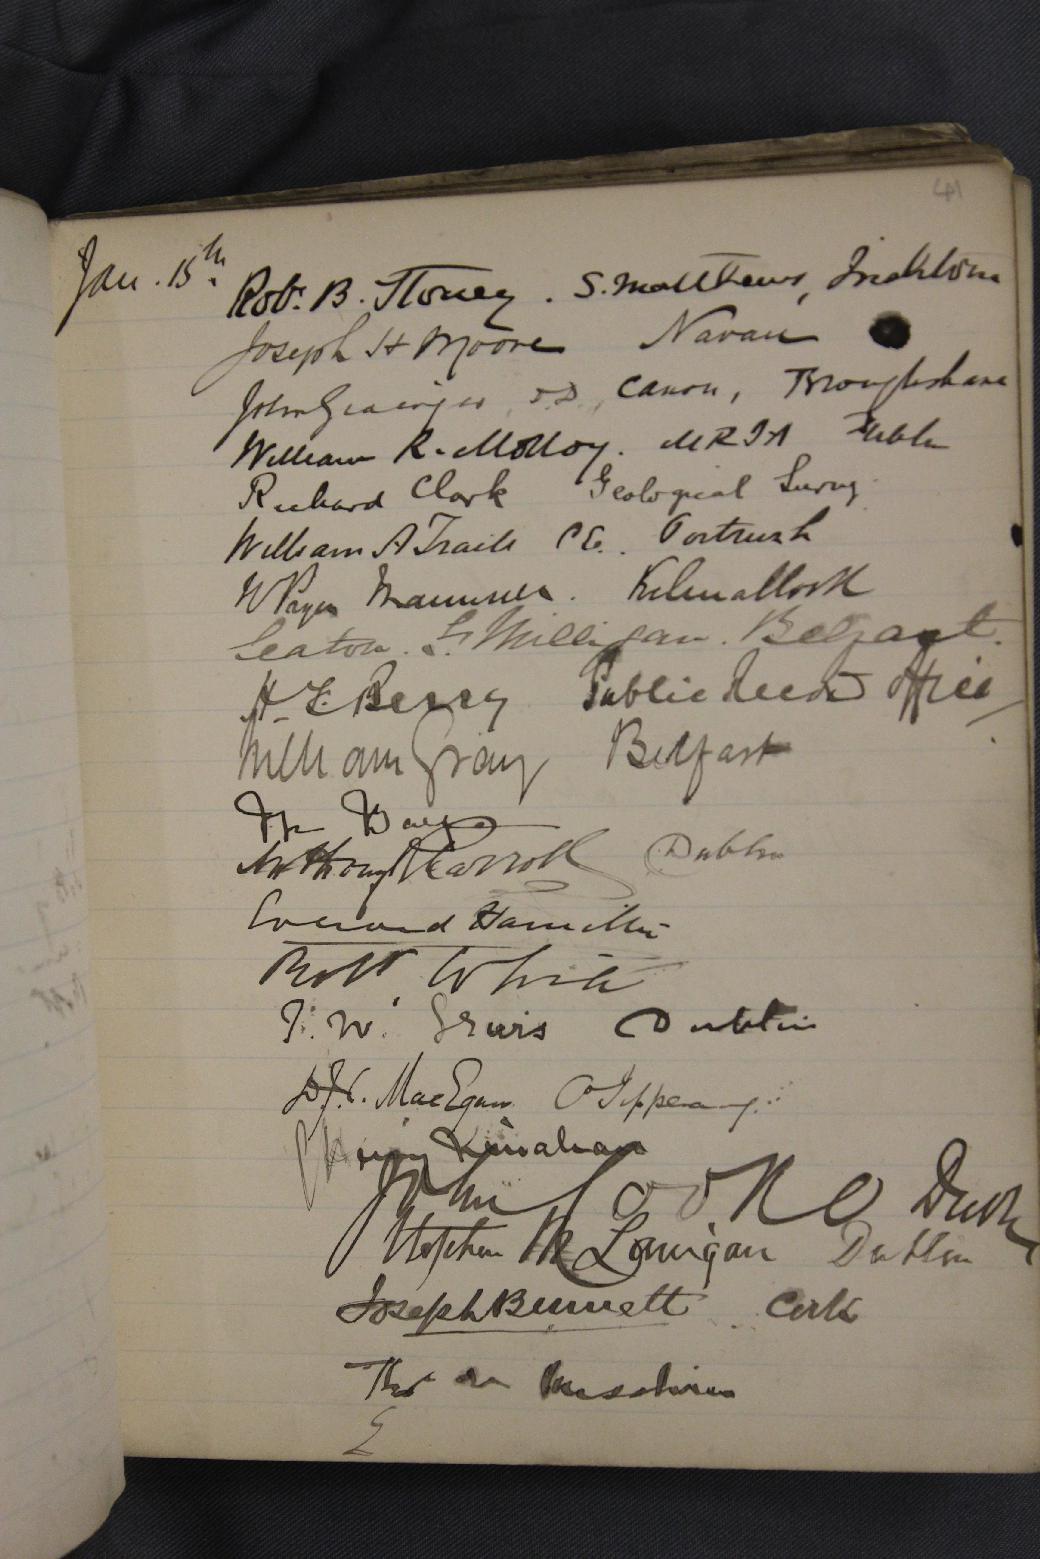 41
Jan. 15th. Robt. B. Stoney. S. Matthews,
Joseph H Moore Navan
John Grainger D.D., Canon, Broughshane
William R. Molloy. MRIA Dublin
Richard Clark Geological Survey
William A Traill C.E. Portrush
Kilmallock
Seaton. F. Milligan. Belfast.
H. F. Berry Public Record Office
William Gray Belfast
Anthony Carroll Dublin
Everard Hamilton
Robt White
Dublin
MacEgan Tipperary
Kinahan
John Cooke Dublin
Stephen M. Lanigan Dublin
Joseph Bennett Cork
Thos